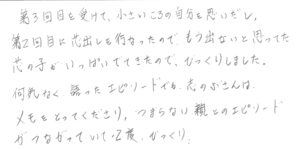 第3回目を受けて、小さいころの自分を思いだし、
第2回目に芯出しを行なったので、もう出ないと思ってた
芯の子がいっぱいでてきたので、びっくりしました。
何気なく語ったエピソードでも、志のぶさんは、
メモをとってくださり、つまらない親とのエピソード
がつながっていて、2度びっくり。